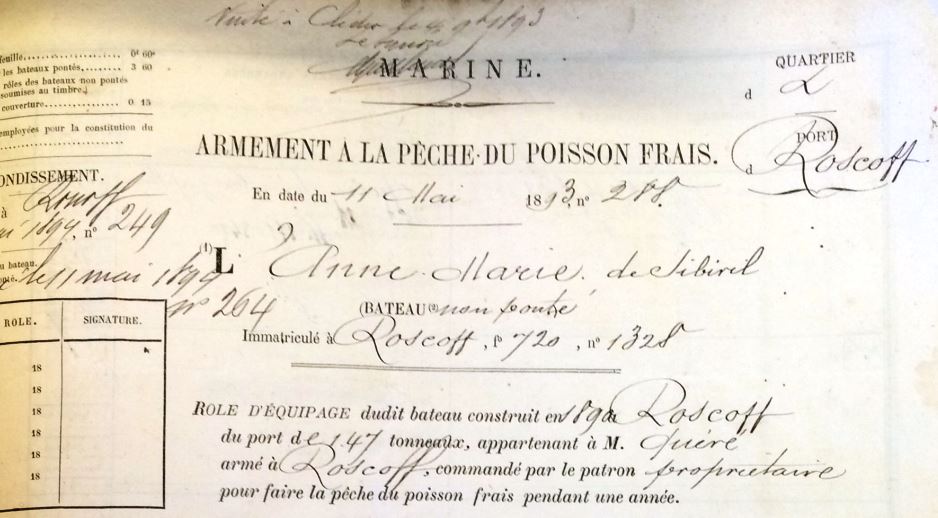 Visité à
1893
MARINE.
QUARTIER
d
PORT
d Roscoff
ARMEMENT A LA PÊCHE DU POISSON FRAIS.
En date du 11 Mai 1893, n° 288
(1) L Anne Marie. de Sibiril
(BATEAU (2) non ponté
Immatriculé à Roscoff, f° 720, n° 1328
ROLE D'ÉQUIPAGE dudit bateau construit en 189 à Roscoff
du port de 1.47 tonneaux, appartenant à M. Quéré
armé à Roscoff, commandé par le patron propriétaire
pour faire la pêche du poisson frais pendant une année.
feuille 0f 60c
les bateaux pontés 3 60
rôles des bateaux non pontés
soumises au timbre)
couverture 0 15
employées pour la constitution du
ONDISSEMENT.
à Roscoff
1894, n° 249
u bateau.
le 11 mai 1894
n° 264
ROLE. SIGNATURE.
18
18
18
18
18
18